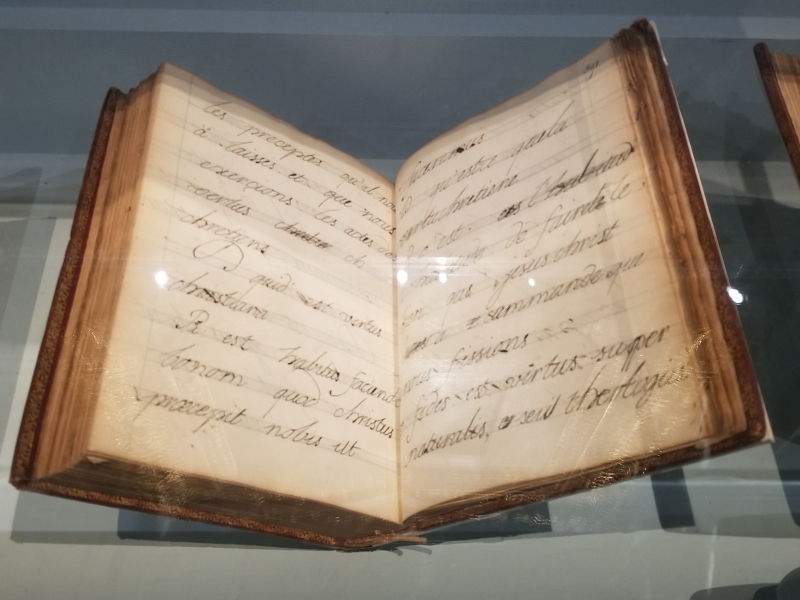 les preceptes qu'il no
a laisses et que nous
exercions les actes
vertus ch
chretiens
quid est virtus
christiana
R est habitus faciendi
bonom quod christus
præcepit nobis ut
faciamus
D qu'estce que la
vertu chretiene
R c'est
de faire le
jesus christ
commande que
nous fissions
fides est virtus super
naturalis, seu theologi